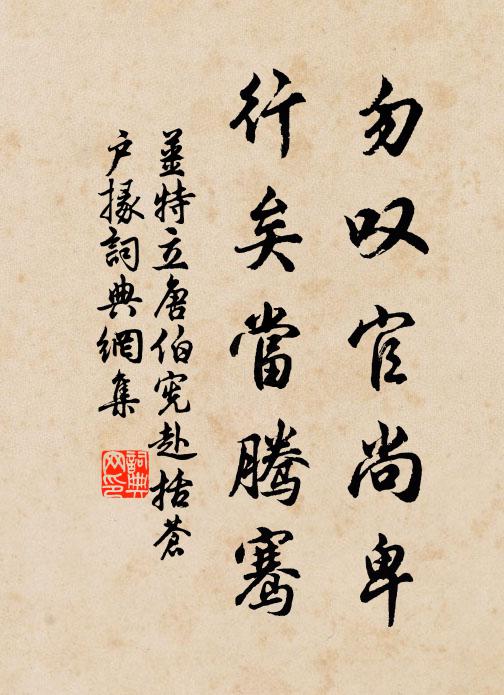 勿叹官尚卑
行矣當騰骞
姜特立唐伯宪赴括蒼
户掾詞典網集
詞典网印